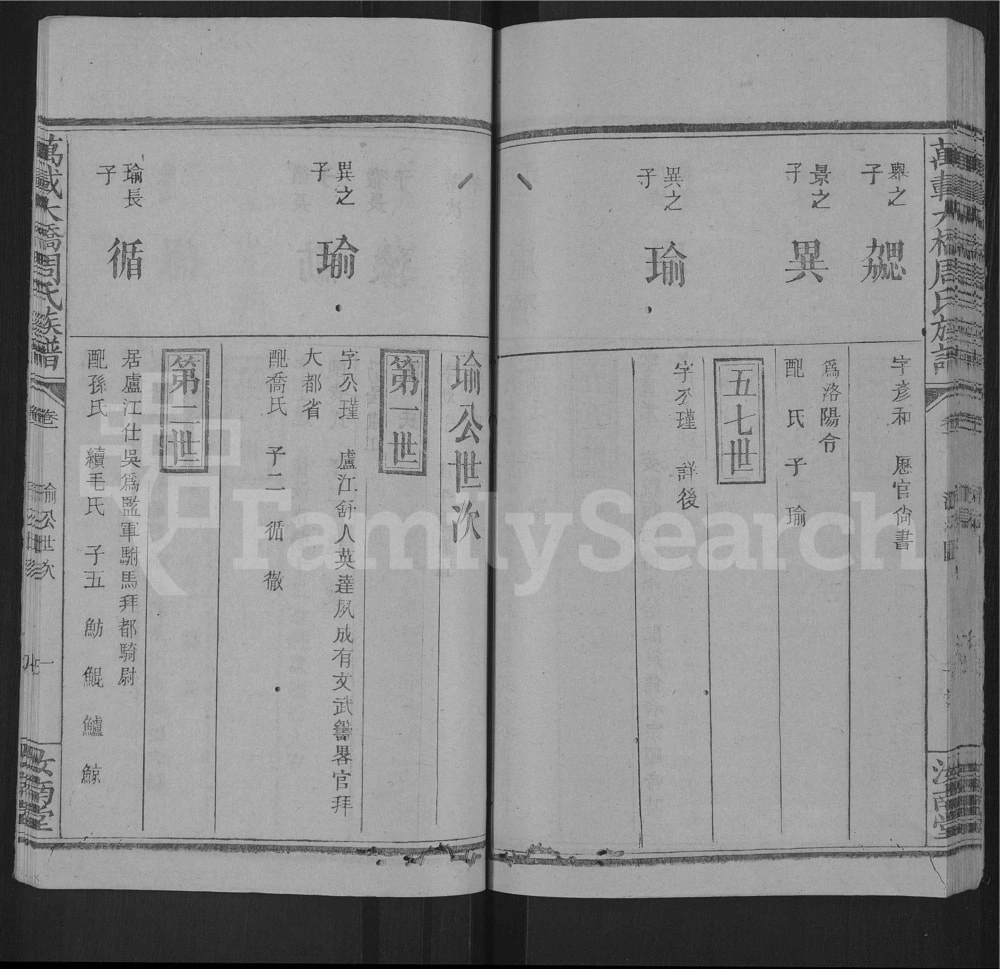 舉之子
勰
字彥和 歷官尙書
景之子
異
爲洛陽令
配 氏 子 瑜
五七世
異之子
瑜
字公瑾 詳後
瑜公世次
第一世
異之子
瑜
字公瑾 廬江舒人英達夙成有文武籌畧官拜
大都省
配喬氏 子二 循 徹
第二世
瑜長子
循
居廬江仕吳爲監軍駙馬拜都騎尉
配孫氏 續毛氏 子五 魴 鯤 鱸 鯨
萬載大橋周氏族譜
卷
瑜公世次
一
汝南堂
FamilySearch